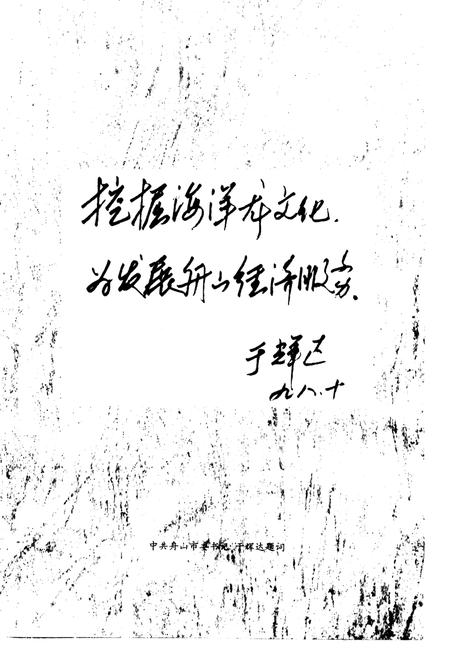 挖掘海洋龙文化.
为发展舟山经济服务.
于辉达
九八.十
中共舟山市委书记于辉达题词